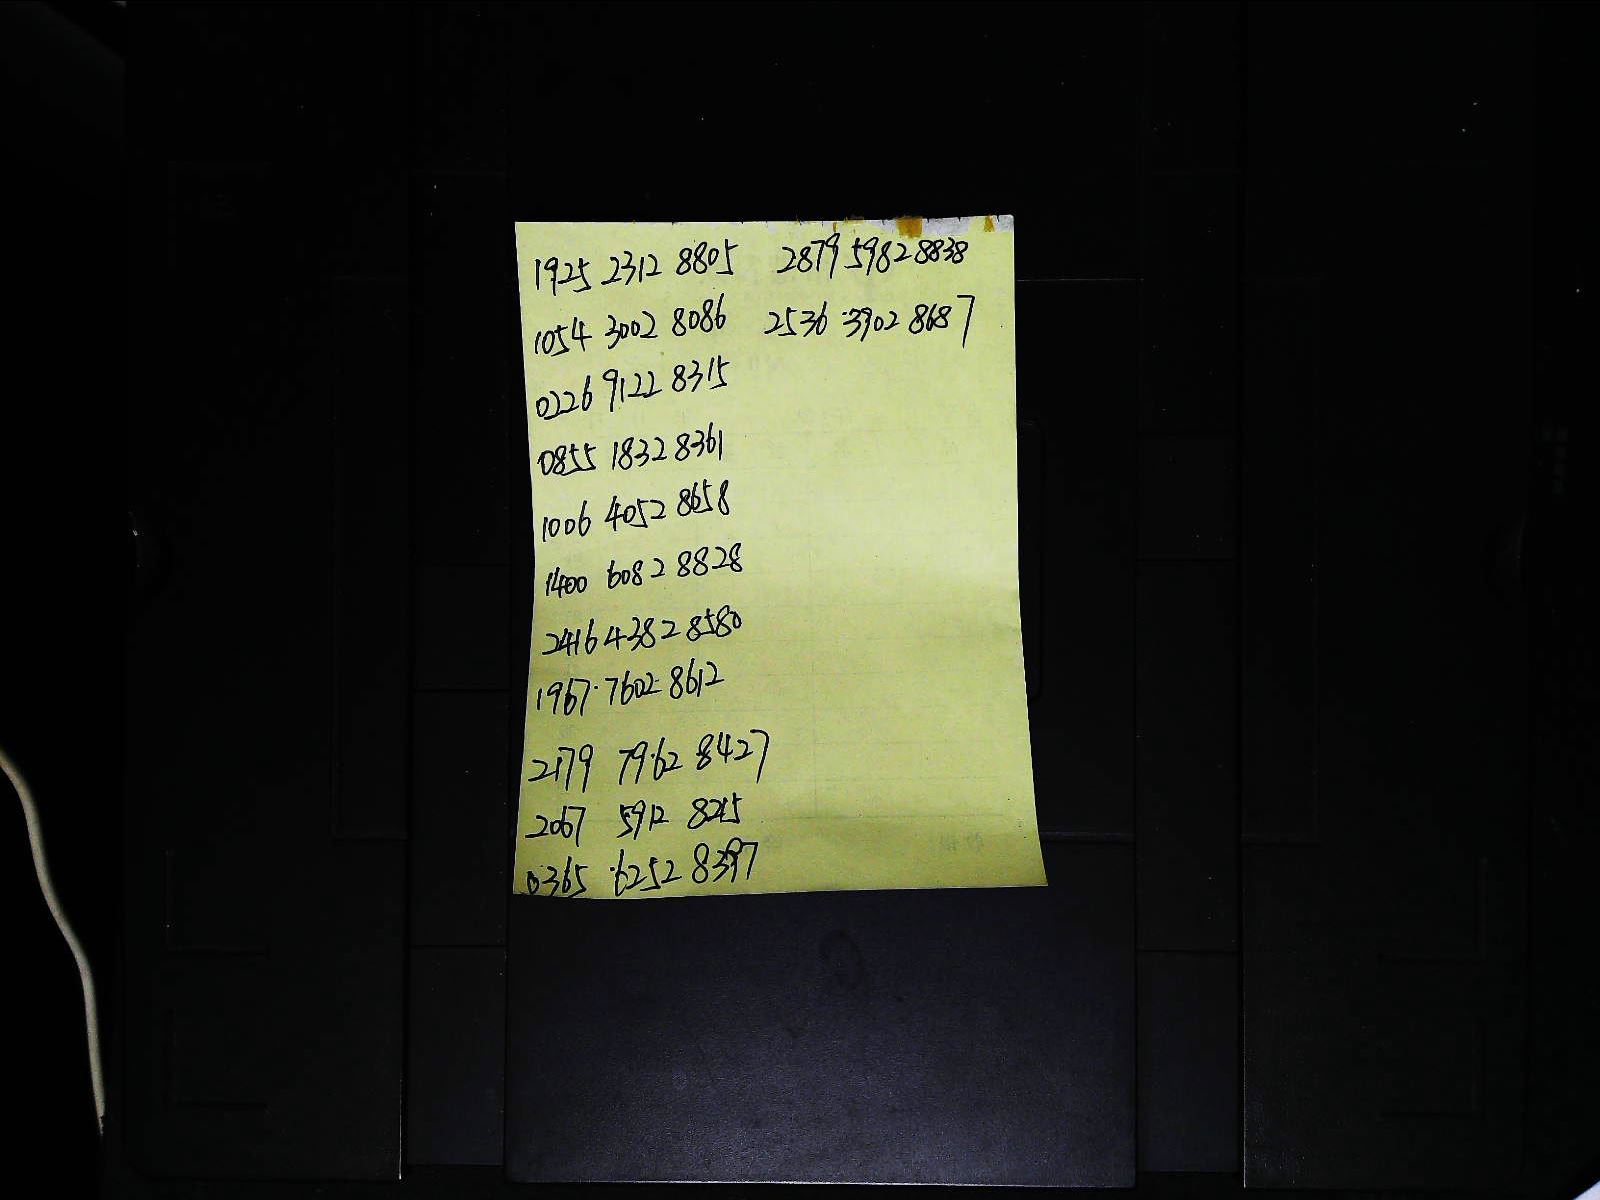 1925 2312 8805 2879 5982 8838
1054 3002 8086 2536 3902 8687
0226 9122 8315
0855 1832 8361
1006 4052 8658
1400 6082 8828
2416 4382 8580
1967 7602 8612
2179 7962 8427
2067 5912 8215
0365 6252 8397